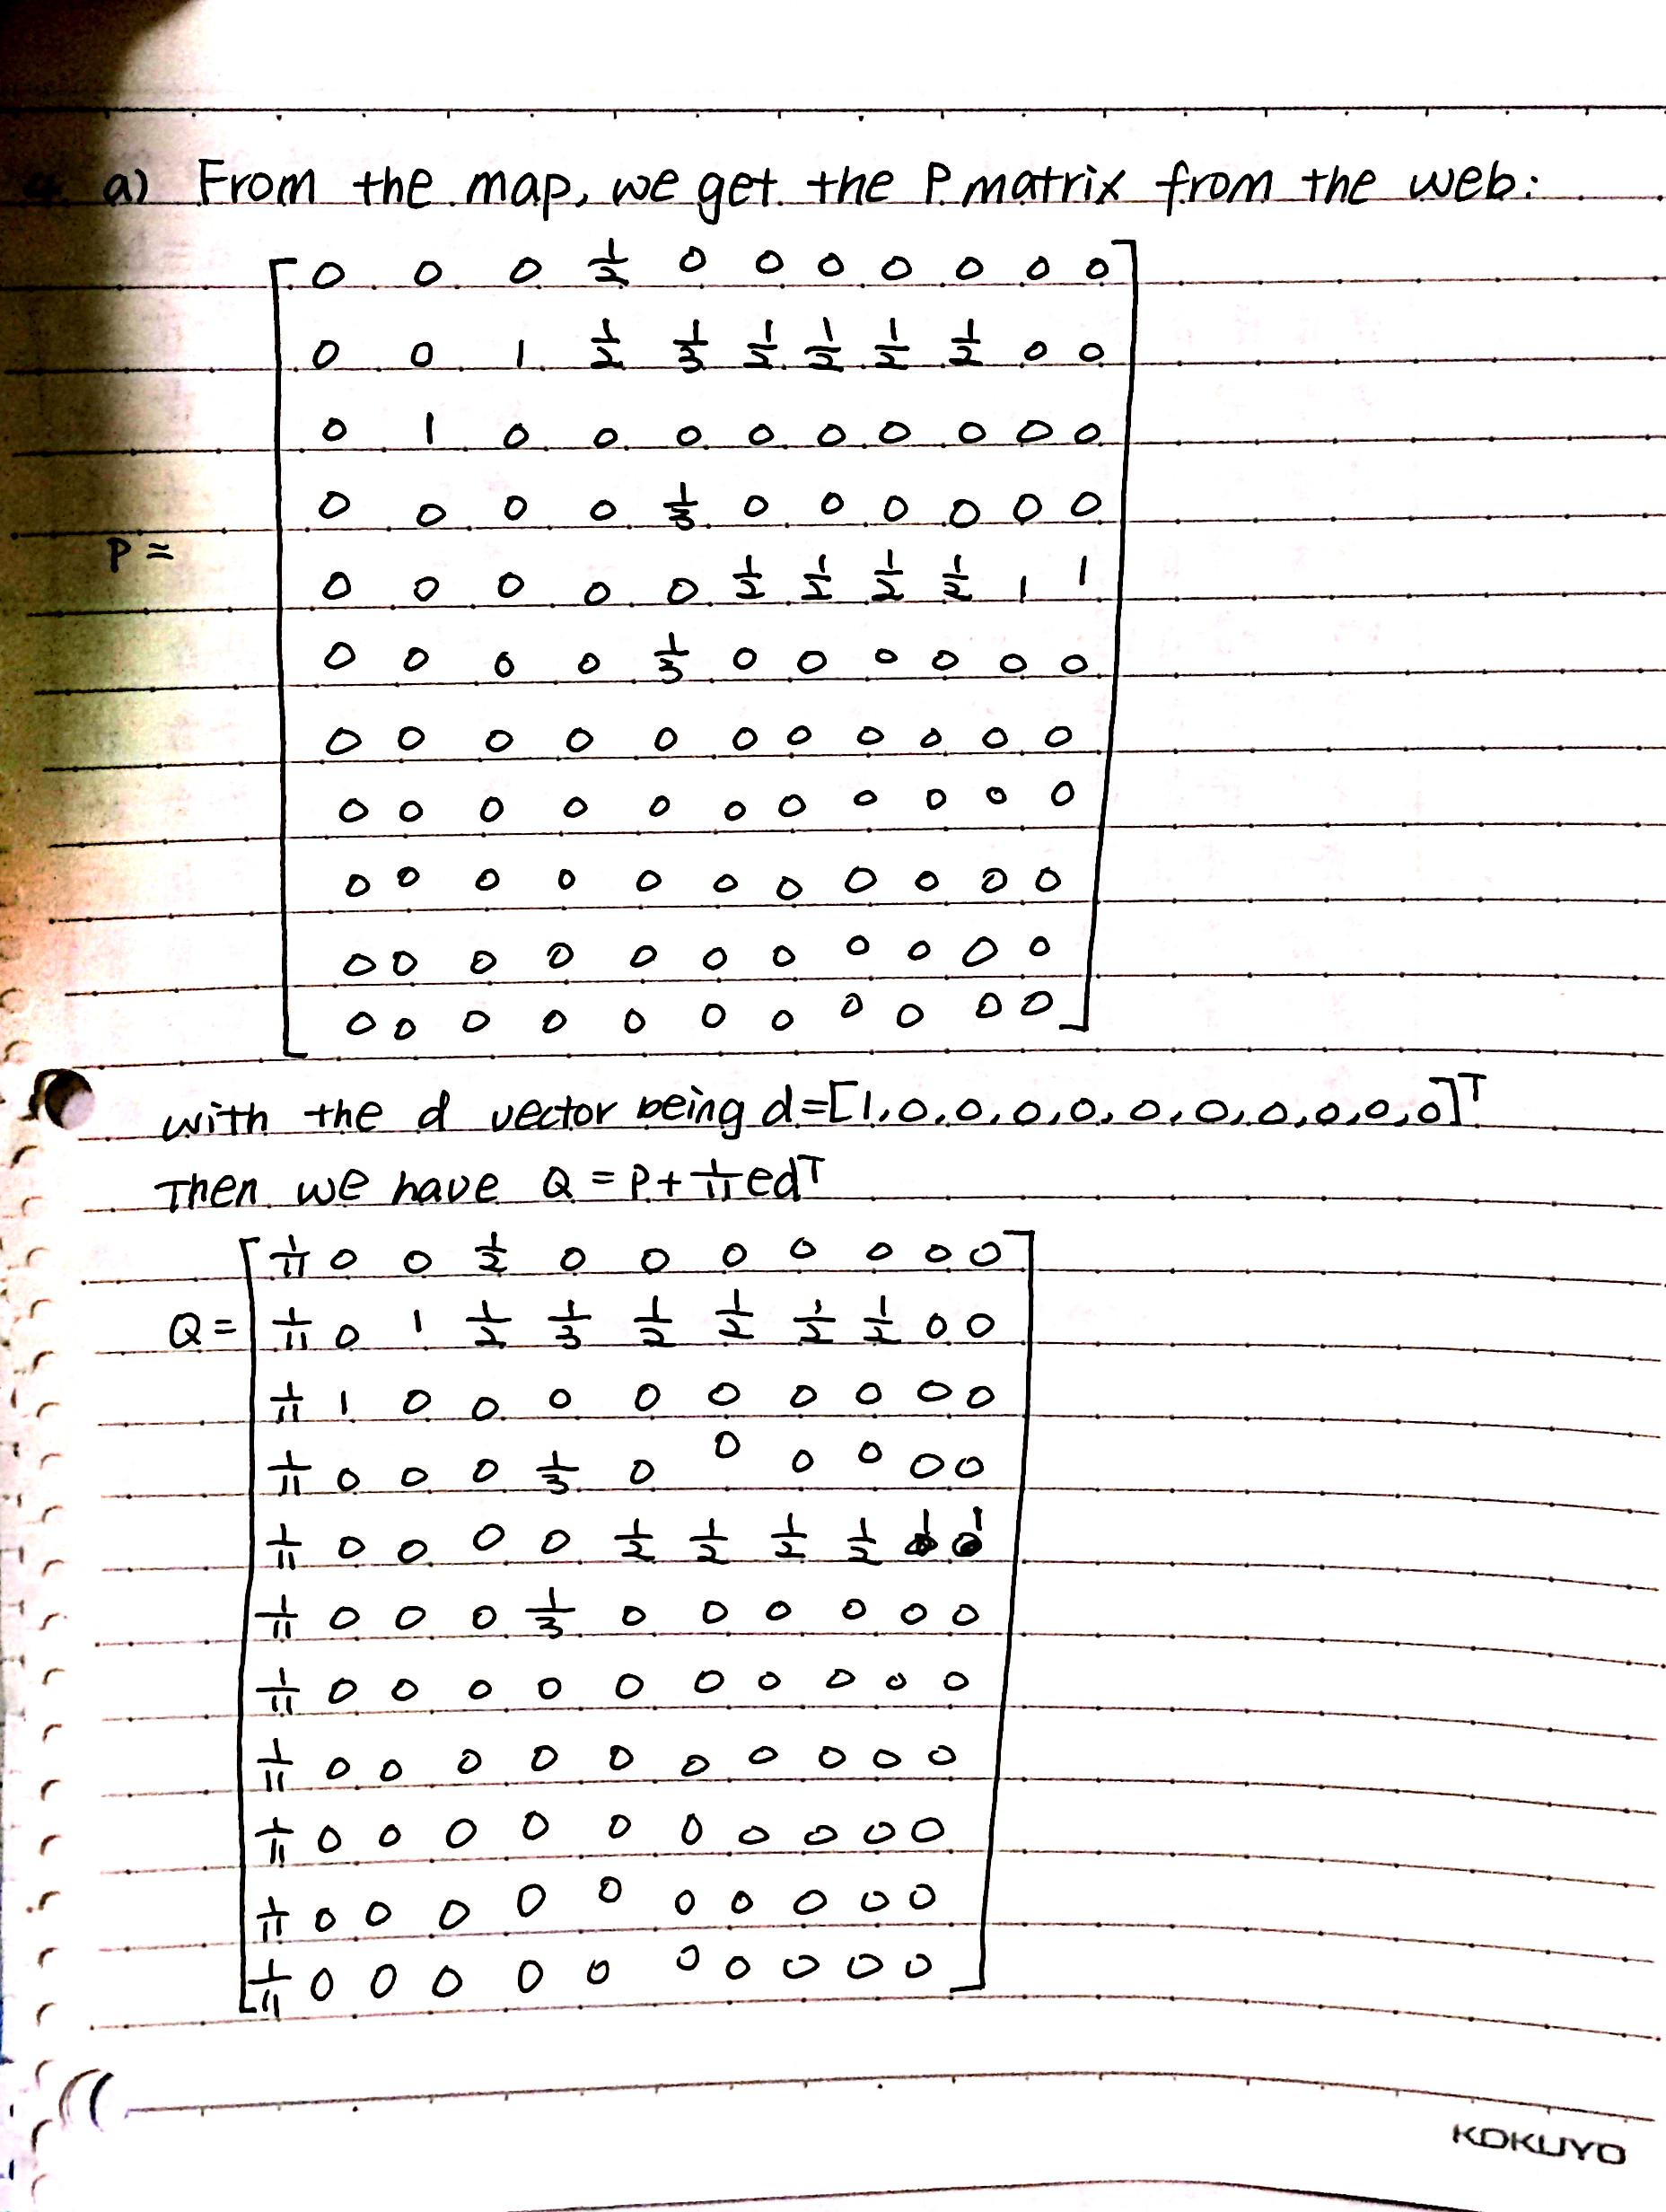 4. a) From the map, we get the P matrix from the web:
0 0 0 1/2 0 0 0 0 0 0 0
0 0 1 1/2 1/3 1/2 1/2 1/2 1/2 0 0
0 1 0 0 0 0 0 0 0 0 0
0 0 0 0 1/3 0 0 0 0 0 0
P =
0 0 0 0 0 1/2 1/2 1/2 1/2 1 1
0 0 0 0 1/3 0 0 0 0 0 0
0 0 0 0 0 0 0 0 0 0 0
0 0 0 0 0 0 0 0 0 0 0
0 0 0 0 0 0 0 0 0 0 0
0 0 0 0 0 0 0 0 0 0 0
0 0 0 0 0 0 0 0 0 0 0
with the d vector being d=[1,0,0,0,0,0,0,0,0,0,0]^T
Then we have Q = P + 1/11 ed^T
1/11 0 0 1/2 0 0 0 0 0 0 0
Q = 1/11 0 1 1/2 1/3 1/2 1/2 1/2 1/2 0 0
1/11 1 0 0 0 0 0 0 0 0 0
1/11 0 0 0 1/3 0 0 0 0 0 0
1/11 0 0 0 0 1/2 1/2 1/2 1/2 1 1
1/11 0 0 0 1/3 0 0 0 0 0 0
1/11 0 0 0 0 0 0 0 0 0 0
1/11 0 0 0 0 0 0 0 0 0 0
1/11 0 0 0 0 0 0 0 0 0 0
1/11 0 0 0 0 0 0 0 0 0 0
1/11 0 0 0 0 0 0 0 0 0 0
KOKUYO